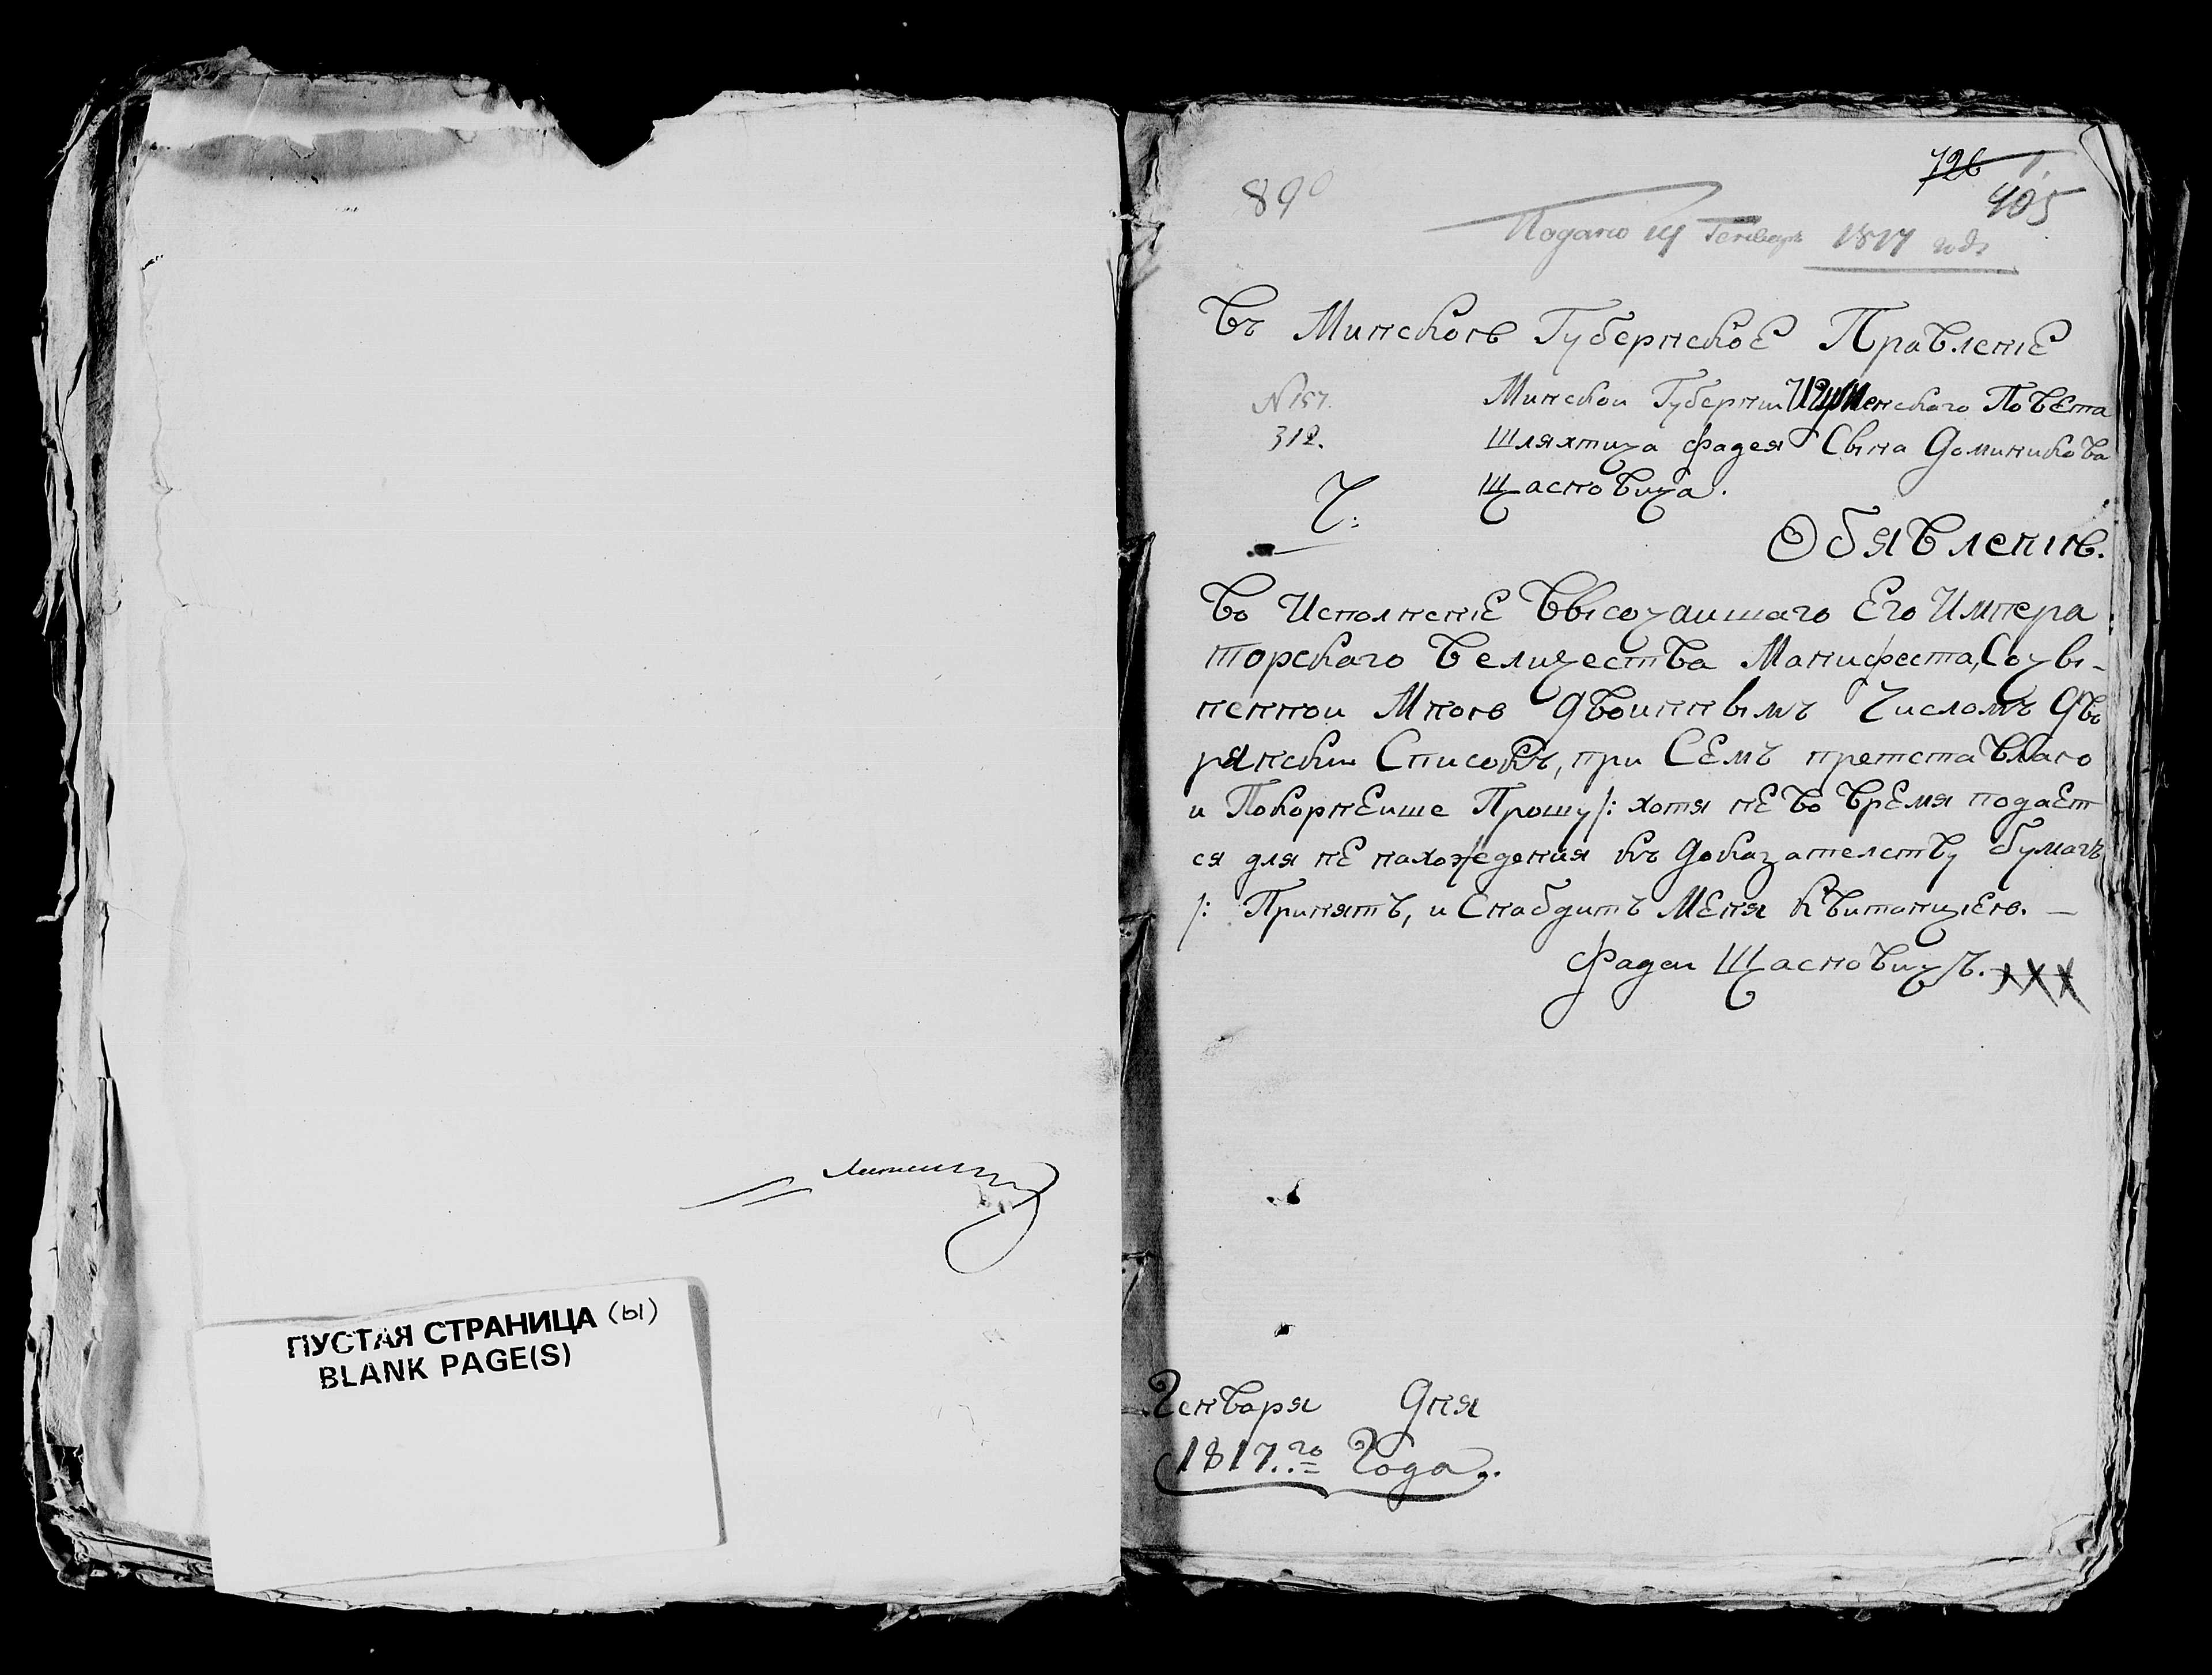 ПУСТАЯ СТРАНИЦА (ы)
BLANK PAGE(S)
890
726
405
Подано 19 Генваря 1817 года
Въ Минскою Губернское Правление
N 157.
312.
Минской Губернии Игуменского Повета
Шляхтича Фадея Сына Доминикова
Щасновича.
Обявлению.
Во Исполнение Высочайшаго Его Импера
торскаго Величества Манифеста, Сочы-
ненной Мною Двойнным Числомъ Дво
рянский Списокъ, при Семъ претставлаю
и Покорнейше Прошу /: хотя не во время подает
ся для не нахожедения къ доказателству бумагъ
/: Принять, и Снабдить Меня Квитанциею. —
Фадей Щасновичъ. xxx
Генваря Дня
1817.го Года.